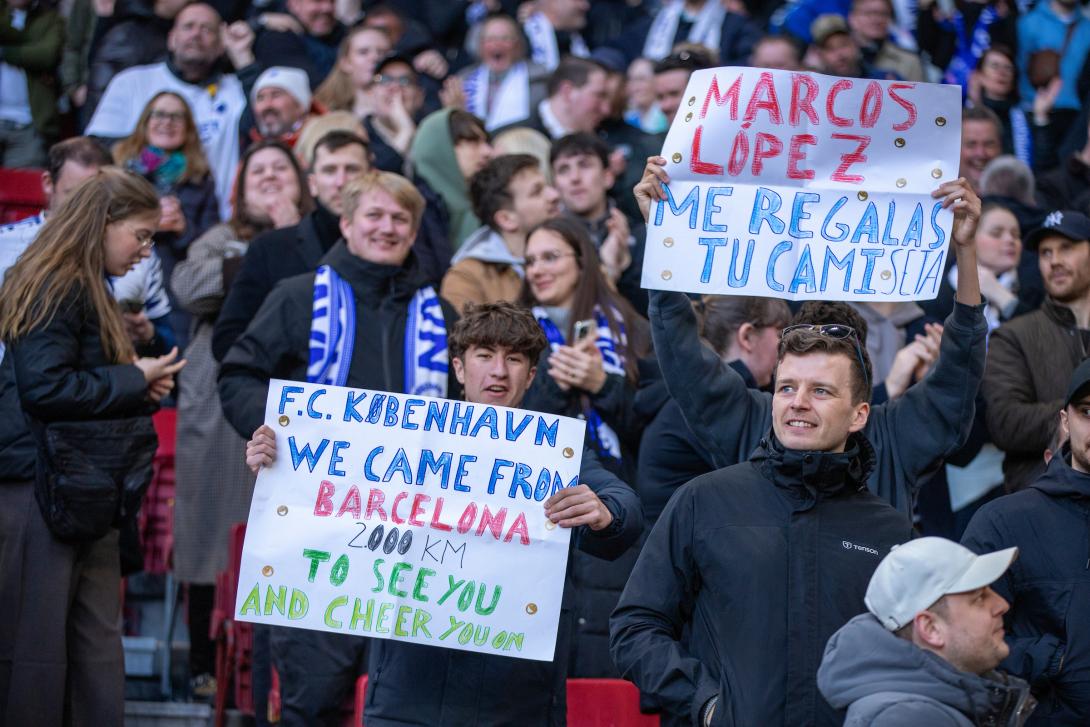 MARCOS
LÓPEZ
ME REGALAS
TU CAMISETA
F.C. KØBENHAVN
WE CAME FROM
BARCELONA
2000 KM
TO SEE YOU
AND CHEER YOU ON
TENSON